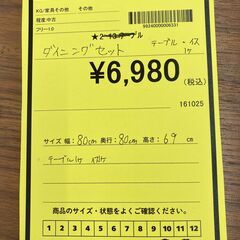 KG/家具その他 その他
程度:中古
フリー10
99240000006331
ダイニングセット
テーブル・イス
¥6,980
(税込)
161025
サイズ 幅: 80cm 奥行: 80cm 高さ: 69 cm
商品のサイズ・状態をよくご確認ください。
1 2 3 4 5 6 7 8 9 10 11 12